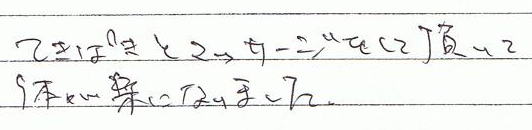 てきぱきとマッサージをして頂いて
体が楽になりました。